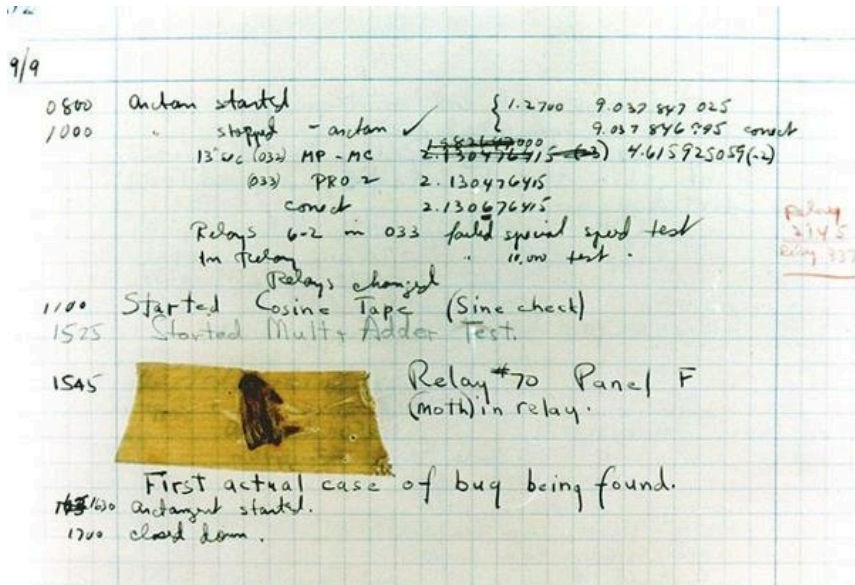 9/9
0800 arctan started { 1.2700 9.037 847 025
1000 " stopped - arctan ✓ 9.037 846 995 correct
(032) MP - MC 2.130476415 4.615925059(-2)
(033) PRO 2 2.130476415
correct 2.130676415
Relays 6-2 in 033 failed special speed test
In Relay " 10,000 test .
Relays changed
Relay
1100 Started Cosine Tape (Sine check)
1525 Started Mult + Adder Test.
1545 Relay #70 Panel F
(moth) in relay.
First actual case of bug being found.
1630 arctangent started.
1700 closed down.